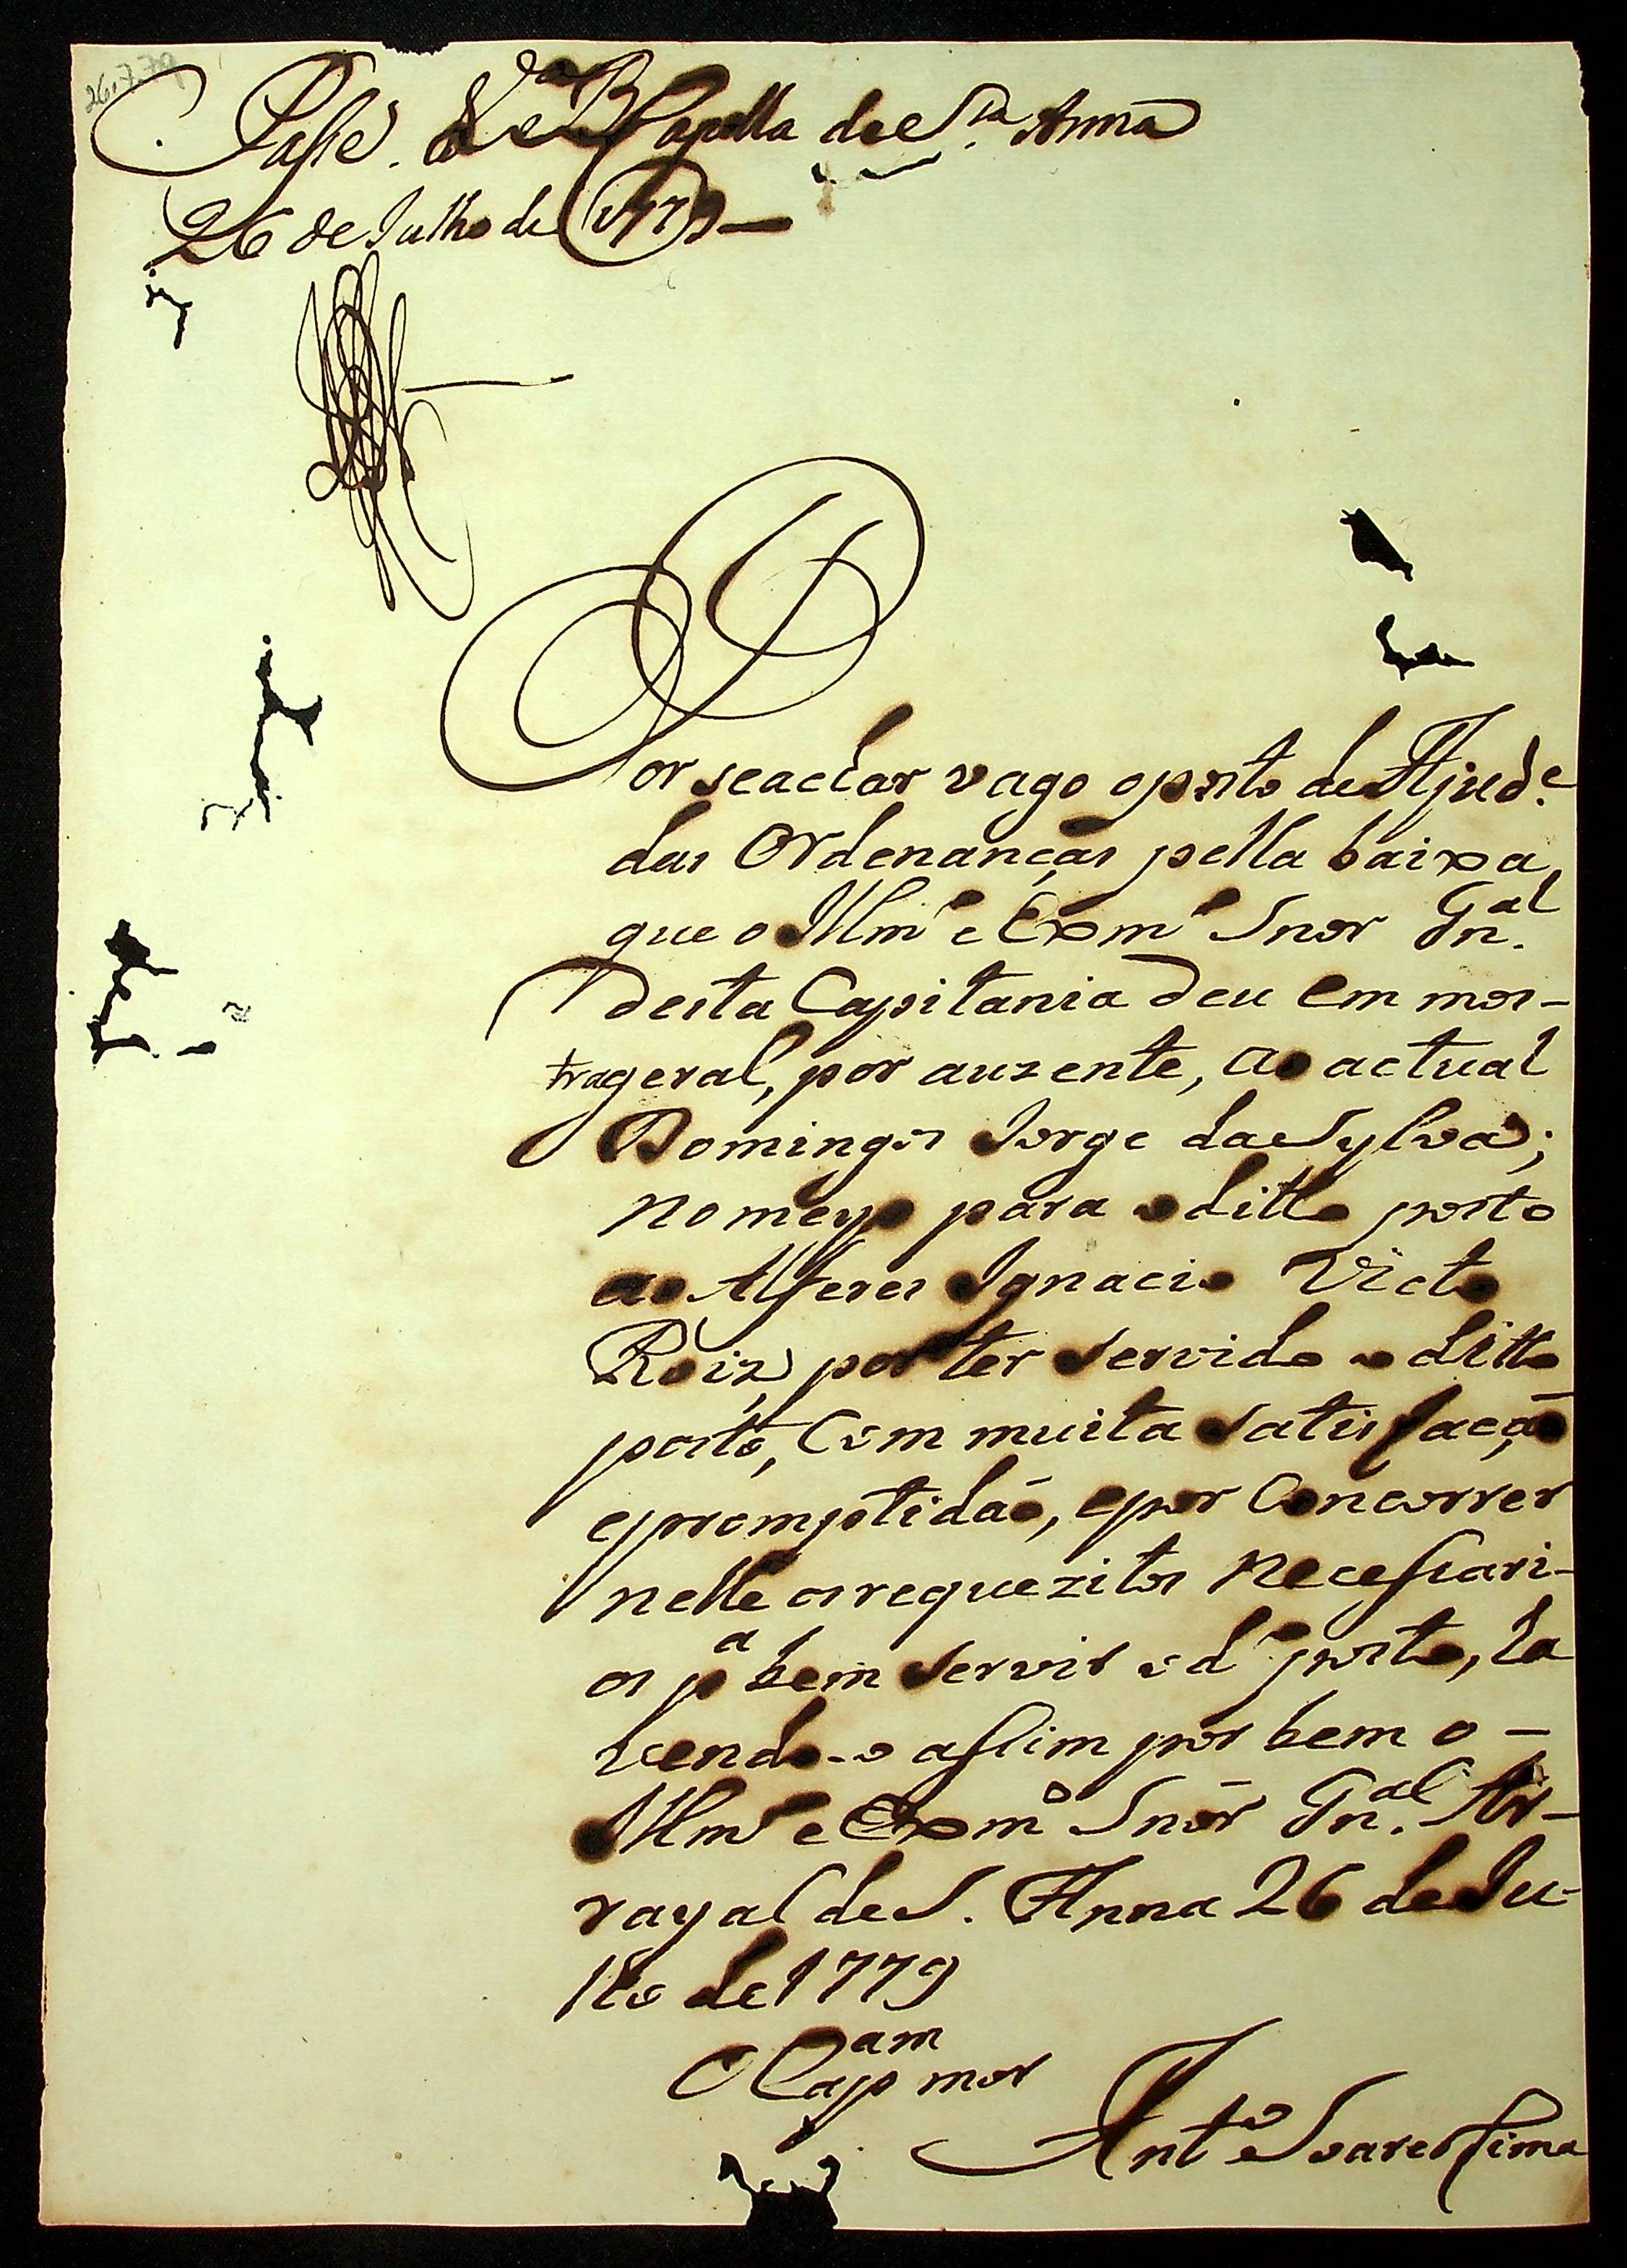 26.7.79
Passe. Capella de S.ta Anna
26 de Julho de 1779
Por seachar vago oposto de Ajud.e
das Ordenanças pella baixa,
que o Illm.o e Exm.o Snor Gn.al
desta Capitania deu em mos-
trageral, por auzente, ao actual
Domingos Jorge da Sylva;
nomeyo para o ditto posto
ao Alferes Ignacio Victo
Roiz, por ter servido o ditto
posto, Com muita satisfação
epromptidão, epor Concorrer
nelle os requezitos necessari-
os p.a bem servir o d.o posto, ha
vendo-o assim por bem o -
Illm.o e Exm.o Snor Gn.al Ar-
rayal de S. Anna 26 de Ju-
lho de 1779
O Cap.am mor
Ant.o Soares Lima